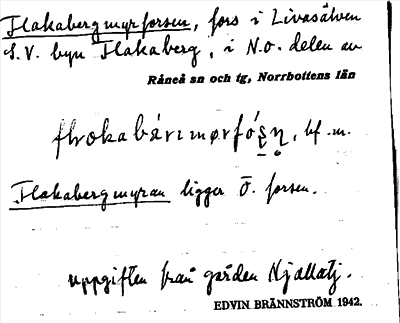 Flakabergmyrforsen, fors i Livasälven
S.V. byn Flakaberg, i N.O. delen av
Råneå sn och tg, Norrbottens län
bf. m.
Flakabergmyran ligger Ö. forsen.
uppgiften från gården Njallatj.
EDVIN BRÄNNSTRÖM 1942.